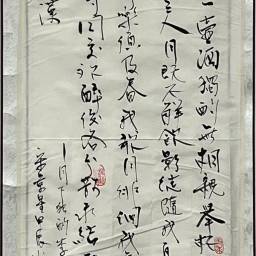 一壺酒獨酌無相親舉杯
三人月既不解飲影徒隨我身
樂須及春我歌月徘徊我
時同交歡醉後各分散永結
漢
月下獨酌李